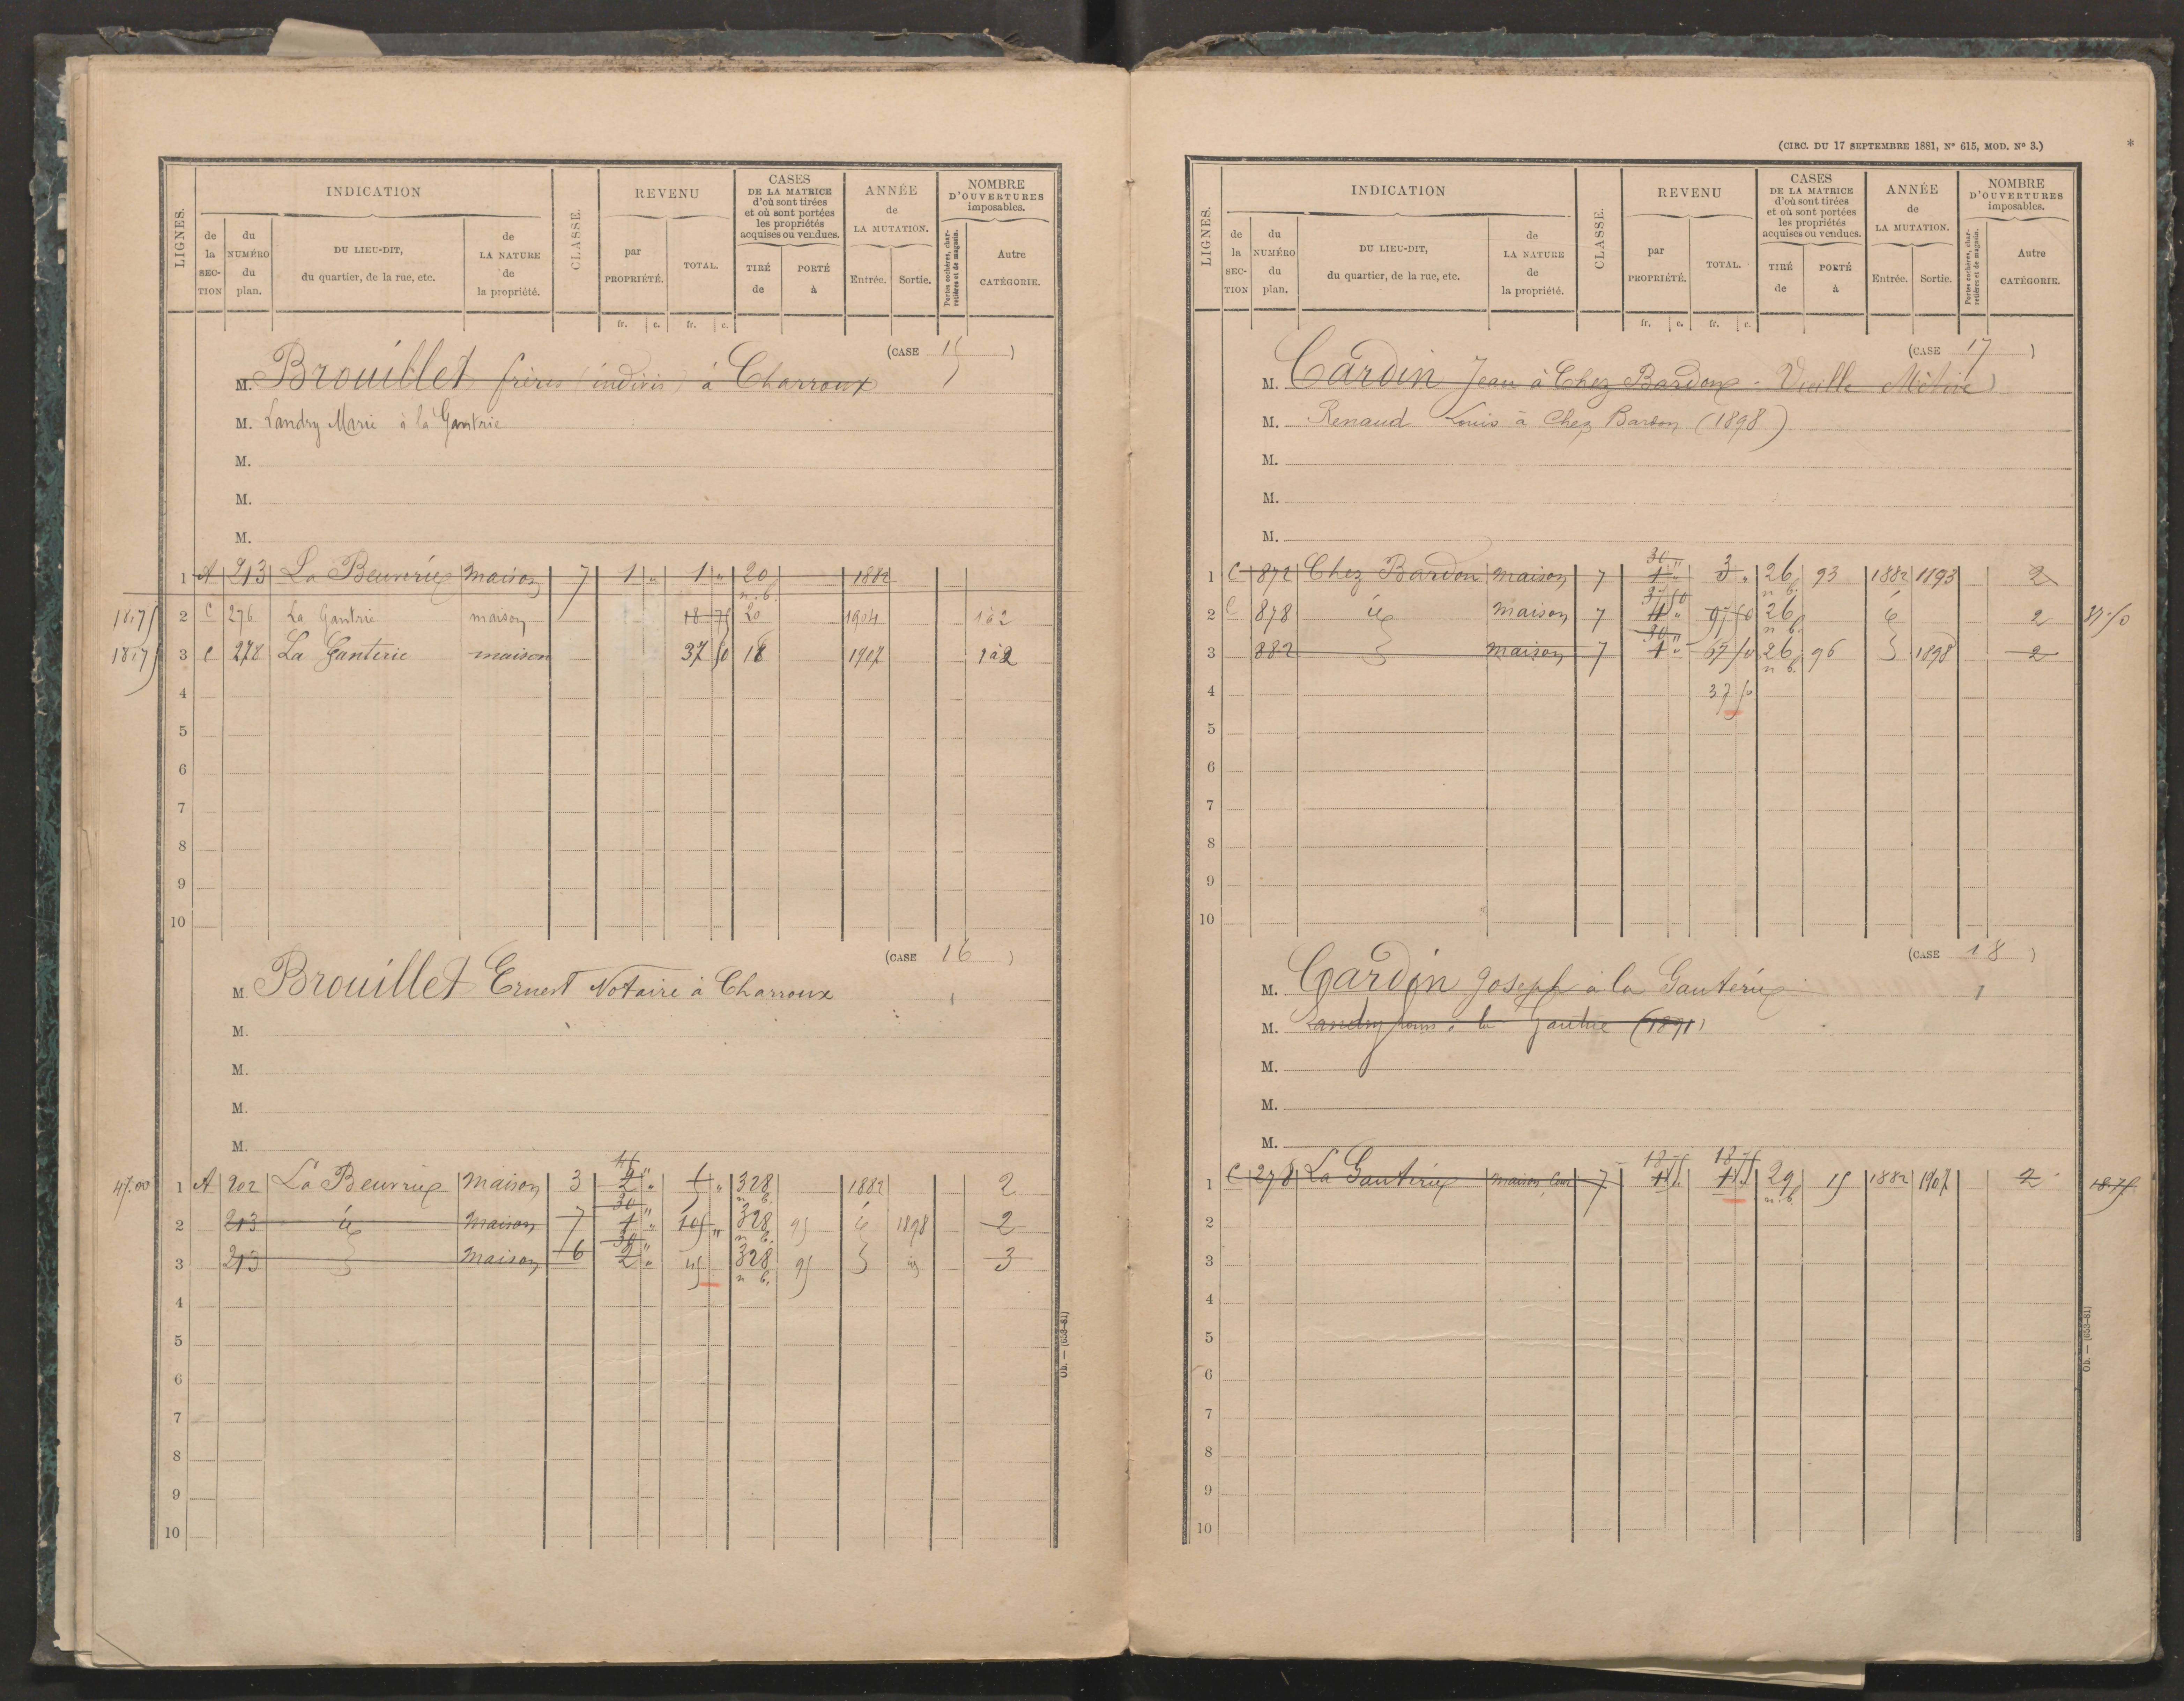 LIGNES.
INDICATION
de la SECTION
du NUMÉRO du plan.
DU LIEU-DIT, du quartier, de la rue, etc.
de LA NATURE de la propriété.
CLASSE.
REVENU
par PROPRIÉTÉ.
TOTAL.
CASES DE LA MATRICE d'où sont tirées et où sont portées les propriétés acquises ou vendues.
TIRÉ de
PORTÉ à
ANNÉE de LA MUTATION.
Entrée.
Sortie.
NOMBRE D'OUVERTURES imposables.
Portes cochères, charretières et de magasin.
Autre CATÉGORIE.
fr. c. fr. c.
(CASE 15)
M. Brouillet frères (indivis) à Charroux
M. Landry Marie à la Gantrie
M.
M.
M.
1 A 213 La Beuvrerie maison 7 1 " 1 " 20 n.b. 1882
18.75 2 C 276 La Gantrie maison 18 75 20 1904 1 à 2
18.75 3 C 278 La Ganterie maison 37 50 18 1907 1 à 2
4
5
6
7
8
9
10
(CASE 16)
M. Brouillet Ernest Notaire à Charroux
M.
M.
M.
M.
47.00 1 A 202 La Beuvrie maison 3 45 " 2 " " 328 n.b. 1882 2
2 213 id maison 7 30 " 1 " 105 " 328 n.b. 95 id 1898 2
3 213 maison 6 30 " 2 " 45 328 n.b. 95 id 3
4
5
6
7
8
9
10
Ob. — (653-81)
(CIRC. DU 17 SEPTEMBRE 1881, Nº 615, MOD. Nº 3.)
*
LIGNES.
INDICATION
de la SECTION
du NUMÉRO du plan.
DU LIEU-DIT, du quartier, de la rue, etc.
de LA NATURE de la propriété.
CLASSE.
REVENU
par PROPRIÉTÉ.
TOTAL.
CASES DE LA MATRICE d'où sont tirées et où sont portées les propriétés acquises ou vendues.
TIRÉ de
PORTÉ à
ANNÉE de LA MUTATION.
Entrée.
Sortie.
NOMBRE D'OUVERTURES imposables.
Portes cochères, charretières et de magasin.
Autre CATÉGORIE.
fr. c. fr. c.
(CASE 17)
M. Cardin Jean à Chez Bardon - Vieille Métive
M. Renaud Louis à Chez Bardon (1898)
M.
M.
M.
1 C 872 Chez Bardon maison 7 30 " 1 " 3 " 26 n.b. 93 1882 1193 2
2 C 878 id maison 7 37 50 97 50 26 n.b. id 2 37 50
3 882 maison 7 30 " 1 " 67 50 26 n.b. 96 1898 2
4 37 50
5
6
7
8
9
10
(CASE 18)
M. Cardin Joseph à la Gauterie 1
M. Landry à la Gautrie (1891)
M.
M.
M.
1 C 278 La Gauterie maison, Cour 7 18 75 18 75 29 n.b. 15 1882 1907 2 18.75
2
3
4
5
6
7
8
9
10
Ob. — (653-81)